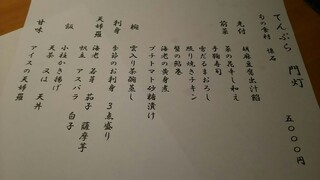 てんぷら 門灯 五〇〇〇円
旬の食材 佳品
先付 胡麻豆腐出汁餡
菜の花辛し和え
前菜 手鞠寿司
雪だるまおろし
照り焼きチキン
蟹の錦巻
海老の黄身煮
プチトマト砂糖漬け
椀 雲入り茶碗蒸し
刺身 季節のお刺身 3点盛り
天婦羅 海老 若芽 茄子 薩摩芋
帆立 アスパラ 白子
飯 小柱かき揚げ
天茶 又は 天丼
甘味 アイスの天婦羅